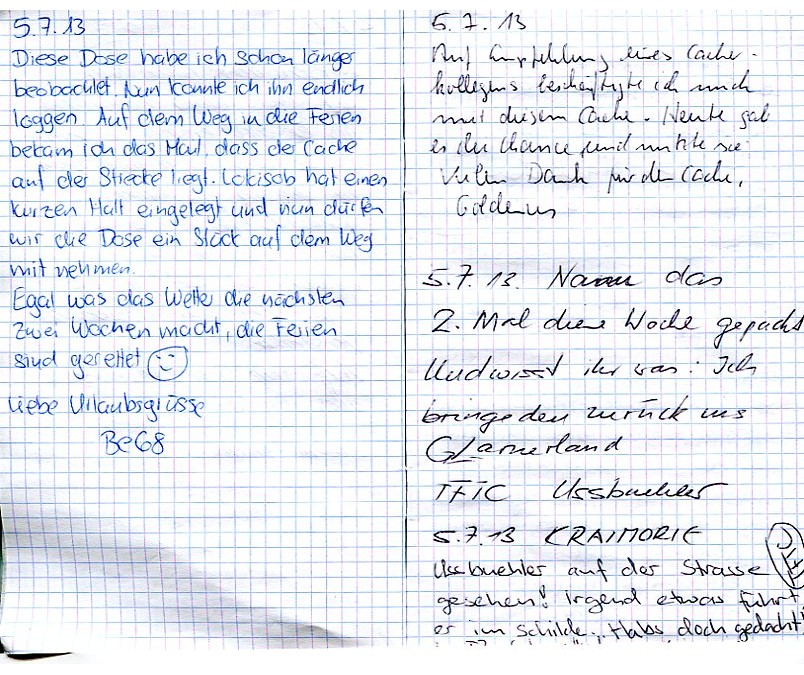 5.7.13
Diese Dose habe ich schon länger
beobachtet. Nun konnte ich ihn endlich
loggen. Auf dem Weg in die Ferien
bekam ich das Mail, dass der Cache
auf der Strecke liegt. Lokisob hat einen
kurzen Halt eingelegt und nun dürfen
wir die Dose ein Stück auf dem Weg
mit nehmen.
Egal was das Wetter die nächsten
zwei Wochen macht, die Ferien
sind gerettet
Liebe Urlaubsgrüsse
BeG8
5.7.13
Auf Empfehlung eines Cacher-
kollegens beschäftigte ich mich
mit diesem Cache. Heute gab
es die Chance und nutzte sie.
Vielen Dank für den Cache,
Goldenus
5.7.13. das
2. Mal diese Woche gepackt
Und wisst ihr was: Ich
bringe den zurück ins
Glarnerland
TFTC Ussbuehler
5.7.13 KRAIMORIE
Ussbuehler auf der Strasse
gesehen! Irgend etwas führt
er im Schilde.. Habs doch gedacht!